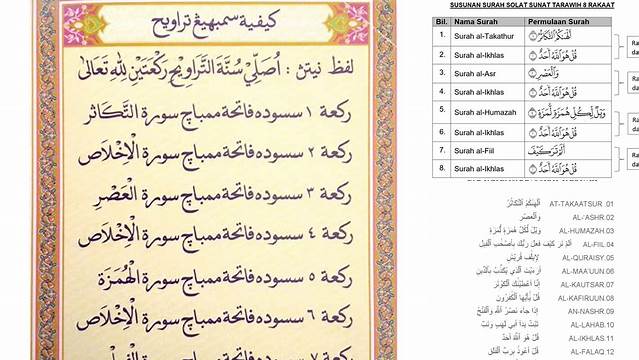 كيفية سمبهيڠ تراويح
لفظ نيتڽ : أُصَلِّي سُنَّةَ التَّرَاوِيحِ رَكْعَتَيْنِ لِلّٰهِ تَعَالَى
ركعة ١ سسوده فاتحة ممباچ سورة التَّكَاثُر
ركعة ٢ سسوده فاتحة ممباچ سورة الْإِخْلَاص
ركعة ٣ سسوده فاتحة ممباچ سورة الْعَصْرِ
ركعة ٤ سسوده فاتحة ممباچ سورة الْإِخْلَاص
ركعة ٥ سسوده فاتحة ممباچ سورة الْهُمَزَة
ركعة ٦ سسوده فاتحة ممباچ سورة الْإِخْلَاص
ركعة ٧ سسوده فاتحة ممباچ سورة
SUSUNAN SURAH SOLAT SUNAT TARAWIH 8 RAKAAT
Bil. Nama Surah Permulaan Surah
1. Surah al-Takathur أَلْهَىٰكُمُ ٱلتَّكَاثُرُ
2. Surah al-Ikhlas قُلْ هُوَ ٱللَّهُ أَحَدٌ
3. Surah al-Asr وَٱلْعَصْرِ
4. Surah al-Ikhlas قُلْ هُوَ ٱللَّهُ أَحَدٌ
5. Surah al-Humazah وَيْلٌ لِّكُلِّ هُمَزَةٍ لُّمَزَةٍ
6. Surah al-Ikhlas قُلْ هُوَ ٱللَّهُ أَحَدٌ
7. Surah al-Fiil أَلَمْ تَرَ كَيْفَ
8. Surah al-Ikhlas قُلْ هُوَ ٱللَّهُ أَحَدٌ
أَلْهَىٰكُمُ ٱلتَّكَاثُرُ AT-TAKAATSUR .01
وَٱلْعَصْرِ AL-'ASHR .02
وَيْلٌ لِّكُلِّ هُمَزَةٍ لُّمَزَةٍ AL-HUMAZAH .03
أَلَمْ تَرَ كَيْفَ فَعَلَ رَبُّكَ بِأَصْحَٰبِ ٱلْفِيلِ AL-FIIL .04
لِإِيلَٰفِ قُرَيْشٍ AL-QURAISY .05
أَرَءَيْتَ ٱلَّذِى يُكَذِّبُ بِٱلدِّينِ AL-MA'UUN .06
إِنَّآ أَعْطَيْنَٰكَ ٱلْكَوْثَرَ AL-KAUTSAR .07
قُلْ يَٰٓأَيُّهَا ٱلْكَٰفِرُونَ AL-KAFIRUUN .08
إِذَا جَآءَ نَصْرُ ٱللَّهِ وَٱلْفَتْحُ AN-NASHR .09
تَبَّتْ يَدَآ أَبِى لَهَبٍ وَتَبَّ AL-LAHAB .10
قُلْ هُوَ ٱللَّهُ أَحَدٌ AL-IKHLAS .11
قُلْ أَعُوذُ بِرَبِّ ٱلْفَلَقِ AL-FALAQ .12